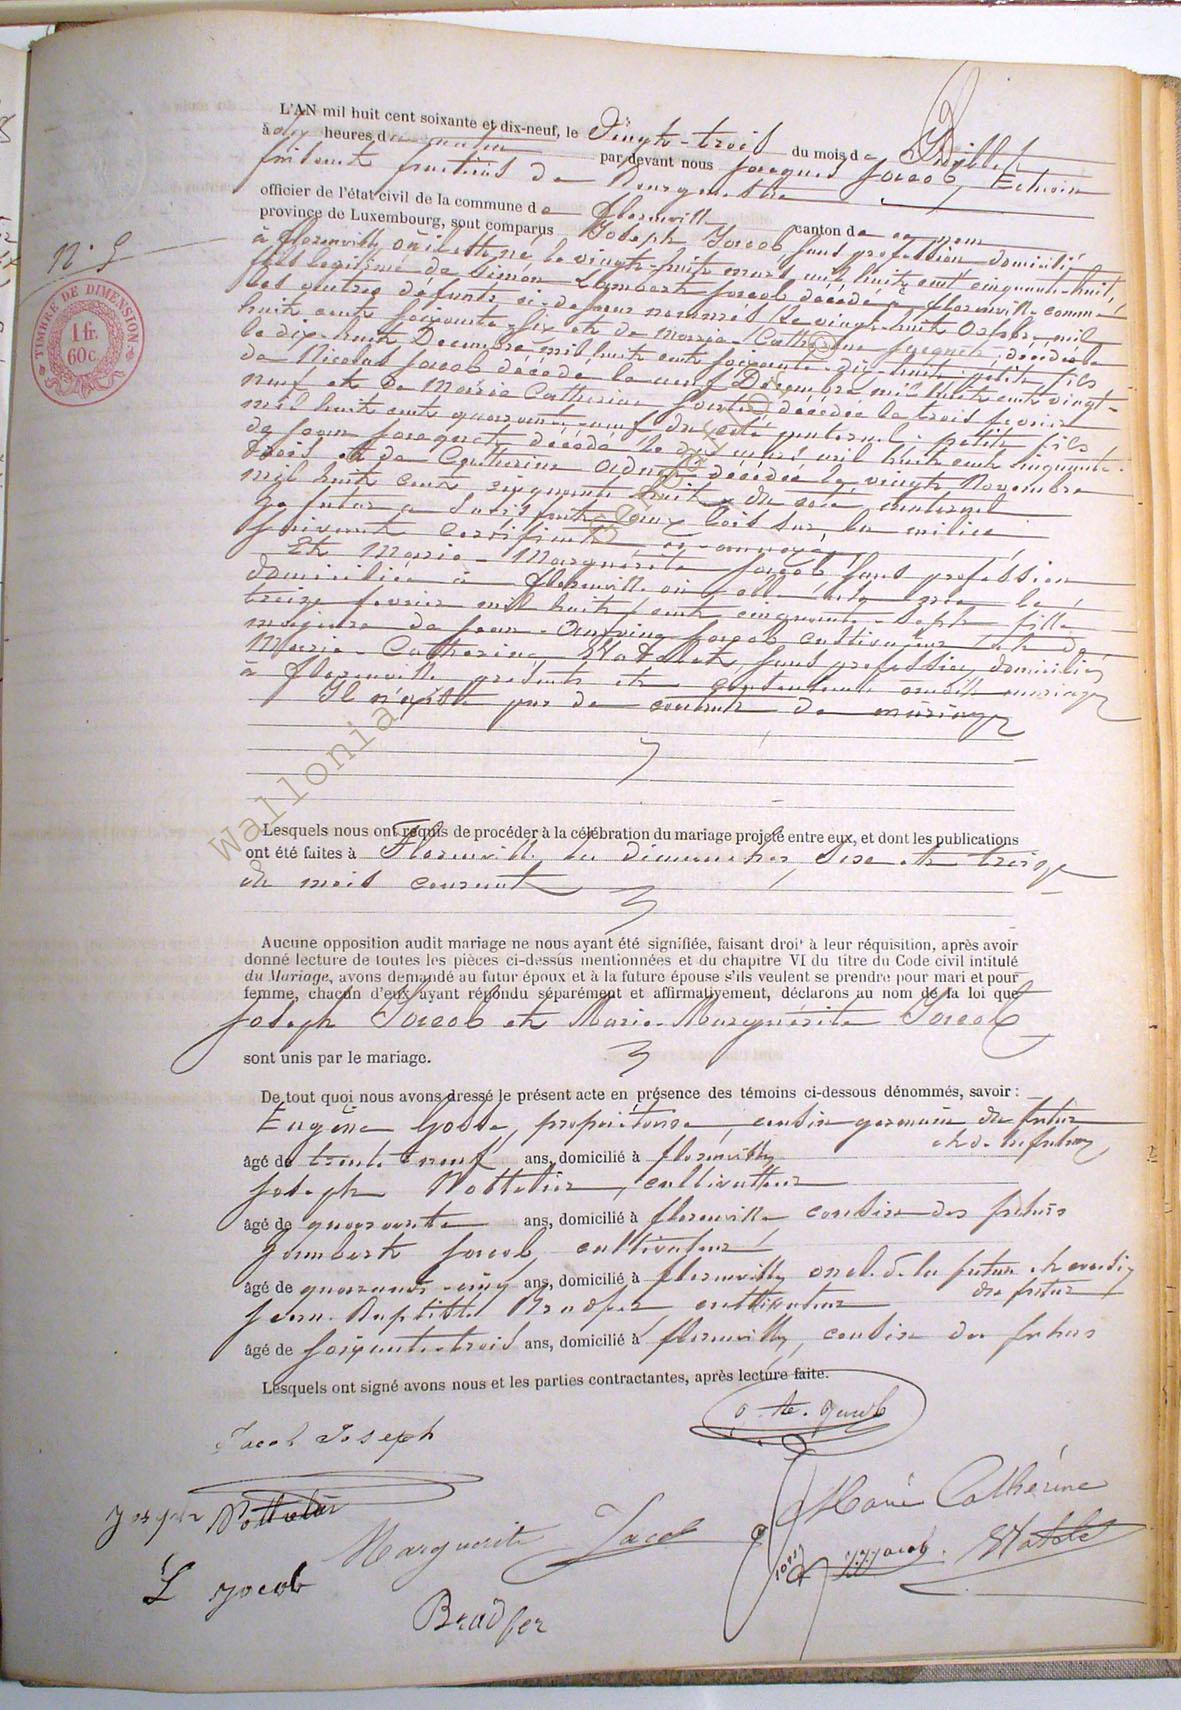 L'AN mil huit cent soixante et dix-neuf, le Vingt-trois du mois de Juillet
à dix heures du matin par devant nous Jacques Jacob, Echevin
faisant fonctions de Bourgmestre
officier de l'état civil de la commune de Florenville canton de ce nom
province de Luxembourg, sont comparus Joseph Jacob sans profession domicilié
à Florenville où il est né le vingt-huit mars mil huit cent cinquante-huit,
fils légitime de Simon Lambert Jacob décédé à Florenville comme
les autres défunts ci-dessous nommés le vingt-huit Octobre mil
huit cent soixante-six et de Marie Catherine décédée
le dix-huit Decembre mil huit cent soixante-dix-huit petit fils
de Nicolas Jacob décédé le neuf Décembre mil huit cent vingt-
neuf et de Marie Catherine décédée le trois fevrier
mil huit cent quarante-neuf du côté paternel petit fils
de Jean décédé le dix mars mil huit cent cinquante-
trois et de Catherine décédée le vingt Novembre
mil huit cent cinquante huit du côté maternel
le futur a satisfait aux lois sur la milice
suivant certificat ci-annexé,
Et Marie-Marguérite Jacob sans profession
domiciliée à Florenville où elle est née le
treize fevrier mil huit cent cinquante-sept fille
majeure de Jean-Jacob cultivateur et de
Marie-Catherine sans profession, domiciliés
à Florenville présents et consentant au dit mariage
Il n'existe pas de contrat de mariage
N° 9
TIMBRE DE DIMENSION
1 fr.
60 c.
Wallonia
Lesquels nous ont requis de procéder à la célébration du mariage projeté entre eux, et dont les publications
ont été faites à Florenville les dimanches, six et treize
du mois courant
Aucune opposition audit mariage ne nous ayant été signifiée, faisant droit à leur réquisition, après avoir
donné lecture de toutes les pièces ci-dessus mentionnées et du chapitre VI du titre du Code civil intitulé
du Mariage, avons demandé au futur époux et à la future épouse s'ils veulent se prendre pour mari et pour
femme, chacun d'eux ayant répondu séparément et affirmativement, déclarons au nom de la loi que
Joseph Jacob et Marie-Marguérite Jacob
sont unis par le mariage.
De tout quoi nous avons dressé le présent acte en présence des témoins ci-dessous dénommés, savoir :
Eugène propriétaire, cousin germain du futur
âgé de trente neuf ans, domicilié à Florenville
Joseph Pottelier, cultivateur
âgé de quarante ans, domicilié à Florenville cousin des futurs
Lambert Jacob, cultivateur
âgé de quarante-cinq ans, domicilié à Florenville oncle de la future et cousin
du futur
Jean-Baptiste Bradfer, cultivateur
âgé de soixante-trois ans, domicilié à Florenville, cousin des futurs
Lesquels ont signé avons nous et les parties contractantes, après lecture faite.
Jacob Joseph
Joseph Pottelier
Marguerite Jacob
Marie Catherine
L Jacob
J. J. Jacob
Bradfer